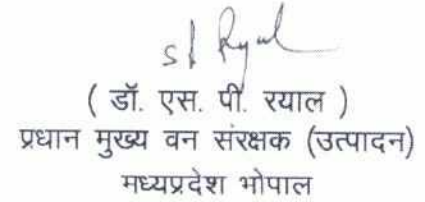 ( डॉ. एस. पी. रयाल )
प्रधान मुख्य वन संरक्षक (उत्पादन)
मध्यप्रदेश भोपाल